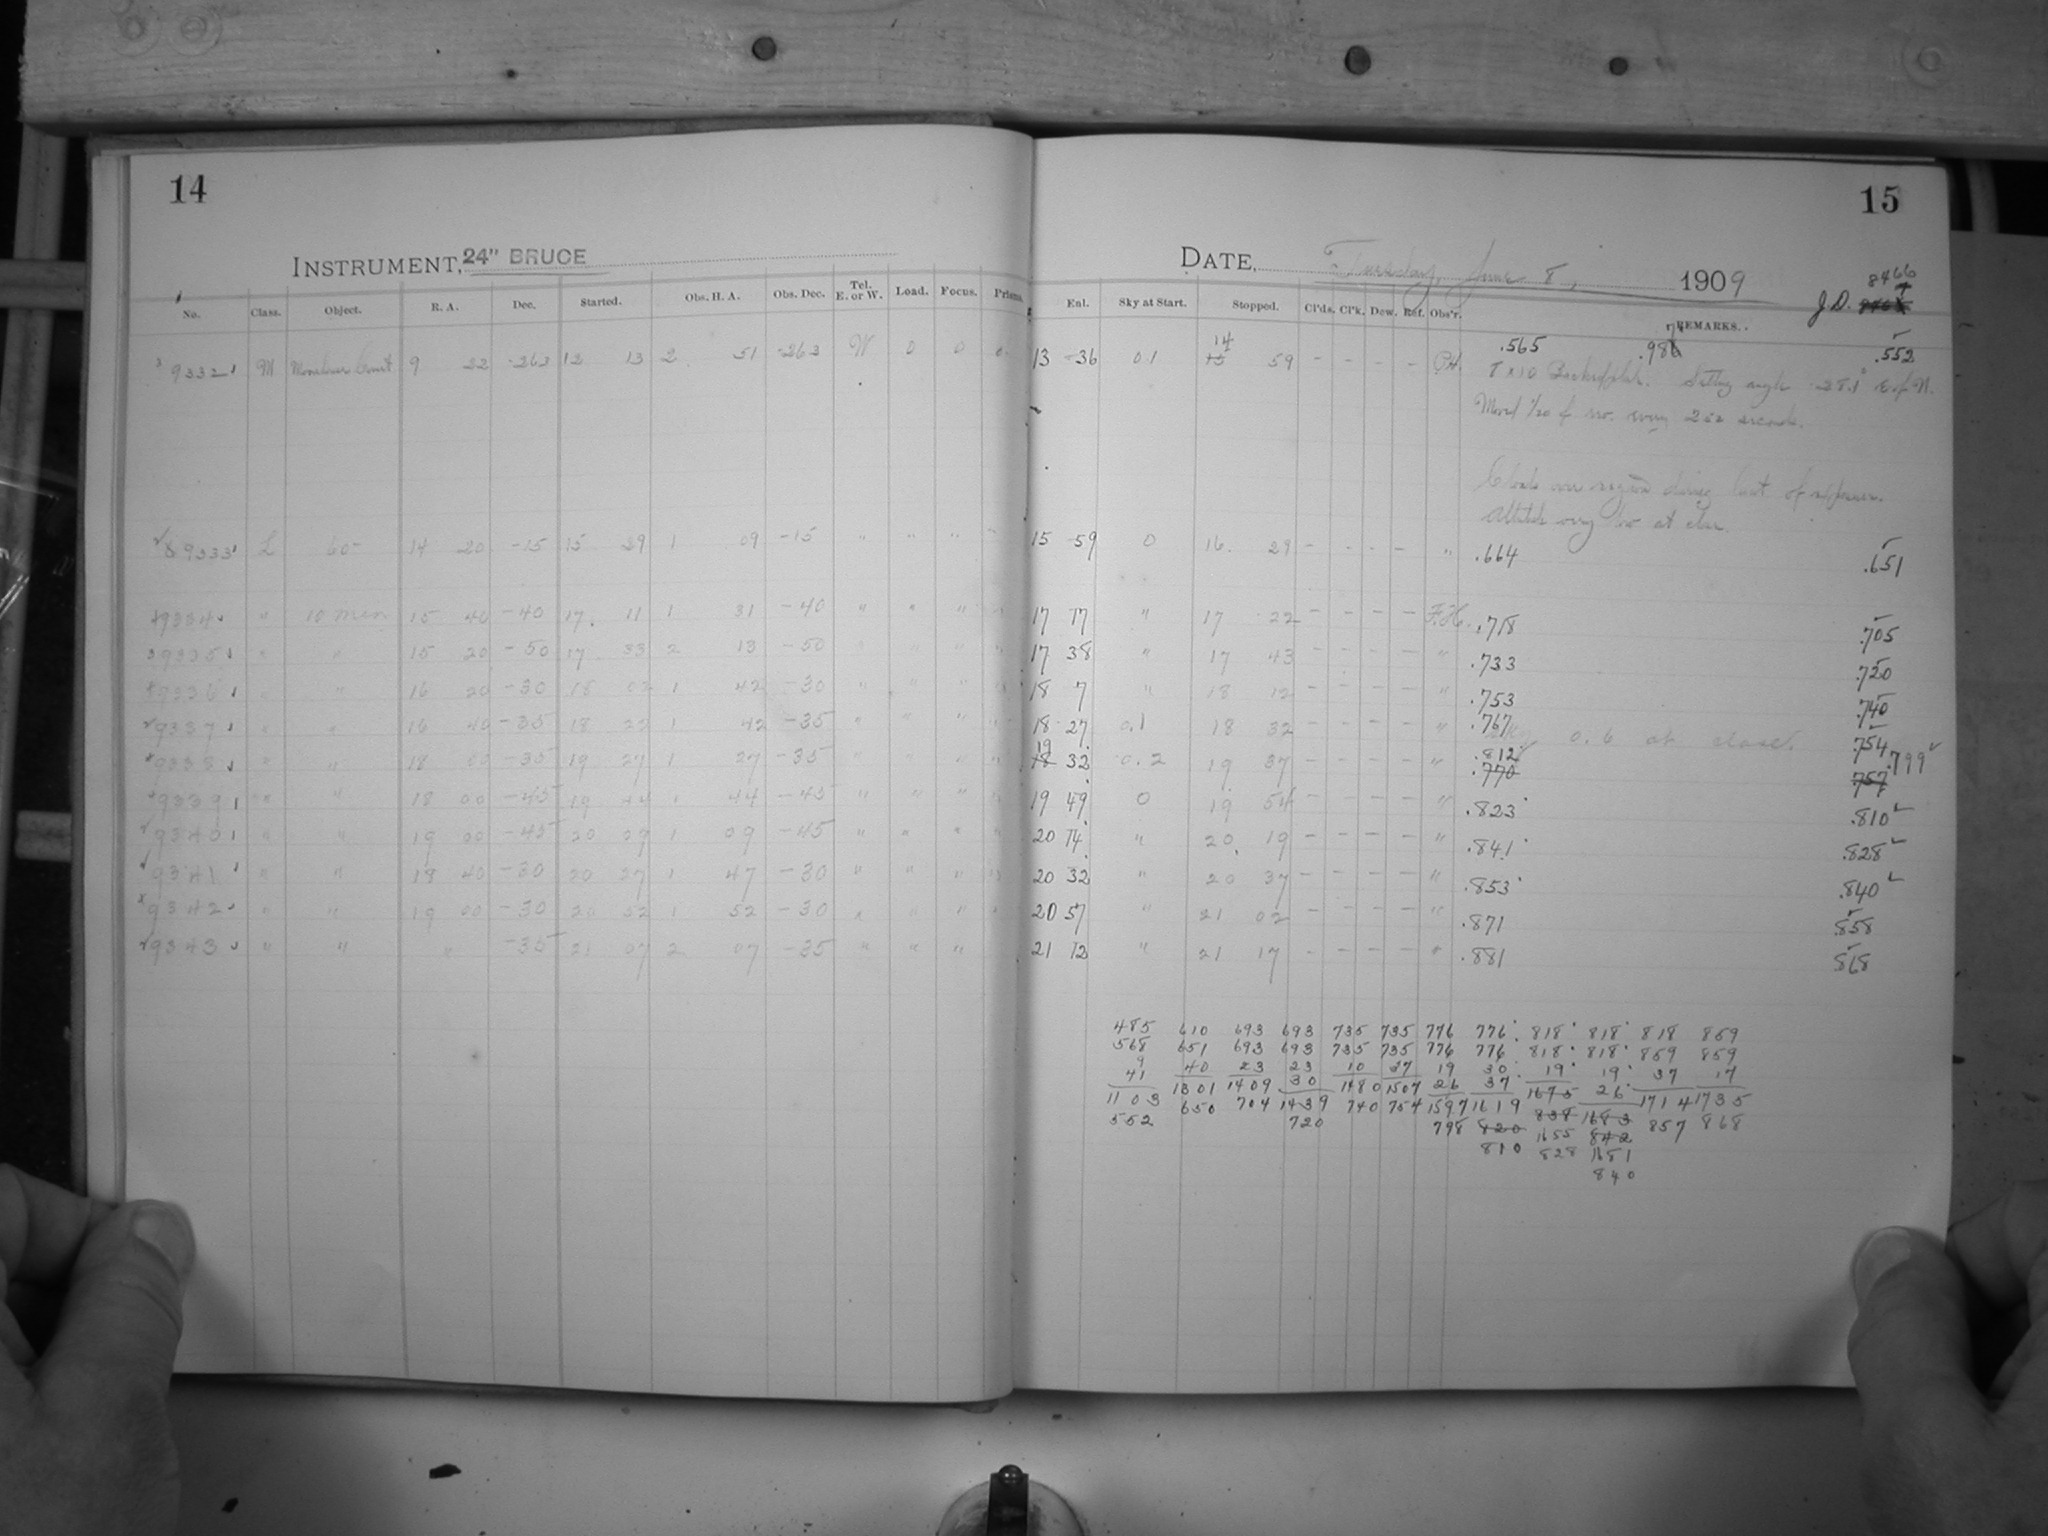 14
INSTRUMENT, 24" BRUCE
No. Class. Object. R. A. Dec. Started. Obs. H. A. Obs. Dec. Tel. E. or W. Load. Focus. Prisms.
9332 M 9 22 -263 12 13 2 51 -263 W 0 0 0
9333 L 60- 14 20 -15 15 29 1 09 -15 " " " -
9334 " 10 min 15 40 -40 17. 11 1 31 -40 " " " "
9335 " " 15 20 -50 17 33 2 13 -50 " " " "
9336 " " 16 20 -30 18 02 1 42 -30 " " " "
9337 " " 16 40 -35 18 22 1 42 -35 " " " "
9338 " " 18 00 -35 19 27 1 27 -35 " " " "
9339 " " 18 00 -45 19 44 1 44 -45 " " " "
9340 " " 19 00 -45 20 09 1 09 -45 " " " "
9341 " " 18 40 -30 20 27 1 47 -30 " " " "
9342 " " 19 00 -30 20 52 1 52 -30 " " " "
9343 " " " -35 21 07 2 07 -35 " " "
15
DATE, Tuesday, June 8, 1909
8466
J.D.
Enl. Sky at Start. Stopped. Cl'ds. Cl'k. Dew. Ref. Obs'r. REMARKS.
13 -36 0.1 14 15 59 - - - - .565 .552
8 x 10 E. of N.
Moved 1/20 of rev. every 252 seconds.
Clouds over region during last of exposure.
Altitude very low at close.
15 59 " 0 16. 29 - - - - " .664 .651
17 17 " 17 22 - - - - F.H. .718 .705
17 38 " 17 43 - - - - " .733 .720
18 7 " 18 12 - - - - " .753 .740
18 27 0.1 18 32 - - - - " .767 .754
0.6 at close.
19 18 32 0.2 19 37 - - - - " .812 .770 .757 .799
19 49 0 19 54 - - - - " .823 .810
20 14 " 20 19 - - - - " .841 .828
20 32 " 20 37 - - - - " .853 .840
20 57 " 21 02 - - - - " .871 .858
21 12 " 21 17 - - - - " .881 .868
485 610 693 693 735 735 776 776 818 818 818 859
568 651 693 693 735 735 776 776 818 818 859 859
9 40 23 23 10 37 19 30 19 19 37 17
41 1301 1409 30 1480 1507 26 37 1675 26 1714 1735
1103 650 704 1439 740 754 1597 1619 838 1683 857 868
552 720 798 820 1655 842
810 828 1681
840